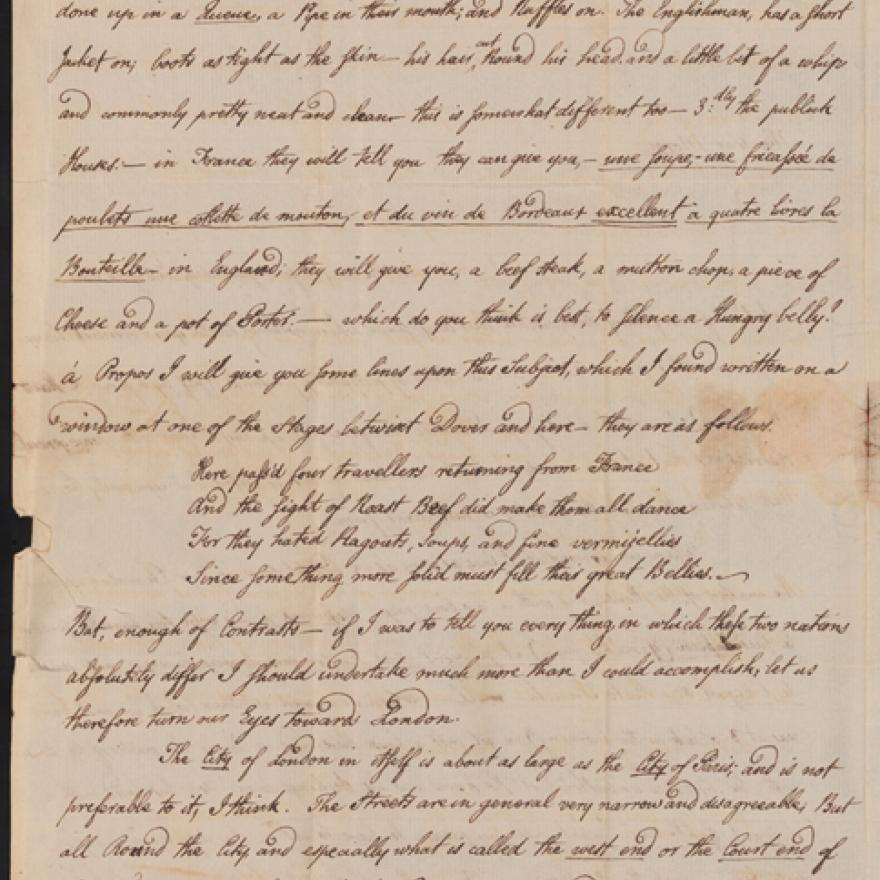 done up in a Queue, a Pipe in their mouth; and Ruffles on. The Englishman, has a short
Jacket on; boots as tight as the skin — his hair, cut Round his head, and a little bit of a whip
and commonly pretty neat and clean — this is somewhat different too — 3:dly the publick
Houses. — in France they will tell you they can give you, — une soupe, — une fricassée de
poulets une cotlette de mouton, et du vin de Bordeaux excellent à quatre livres la
Bouteille — in England; they will give you, a beef steak, a mutton chop, a piece of
Cheese and a pot of Porter. — which do you think is best, to silence a Hungry belly?
á Propos I will give you some lines upon this Subject, which I found written on a
window at one of the Stages betwixt Dover and here — they are as follows.
Here pass'd four travellers returning from France
And the sight of Roast Beef did make them all dance
For they hated Ragouts, soups, and fine vermijellies
Since something more solid must fill their great Bellies. —
But, enough of Contrasts — if I was to tell you every thing in which these two nations
absolutely differ I should undertake much more than I could accomplish, let us
therefore turn our Eyes toward London.
The City of London in itself is about as large as the City of Paris; and is not
preferable to it, I think. The Streets are in general very narrow and disagreeable, But
all Round the City and especially what is called the west end or the Court end of